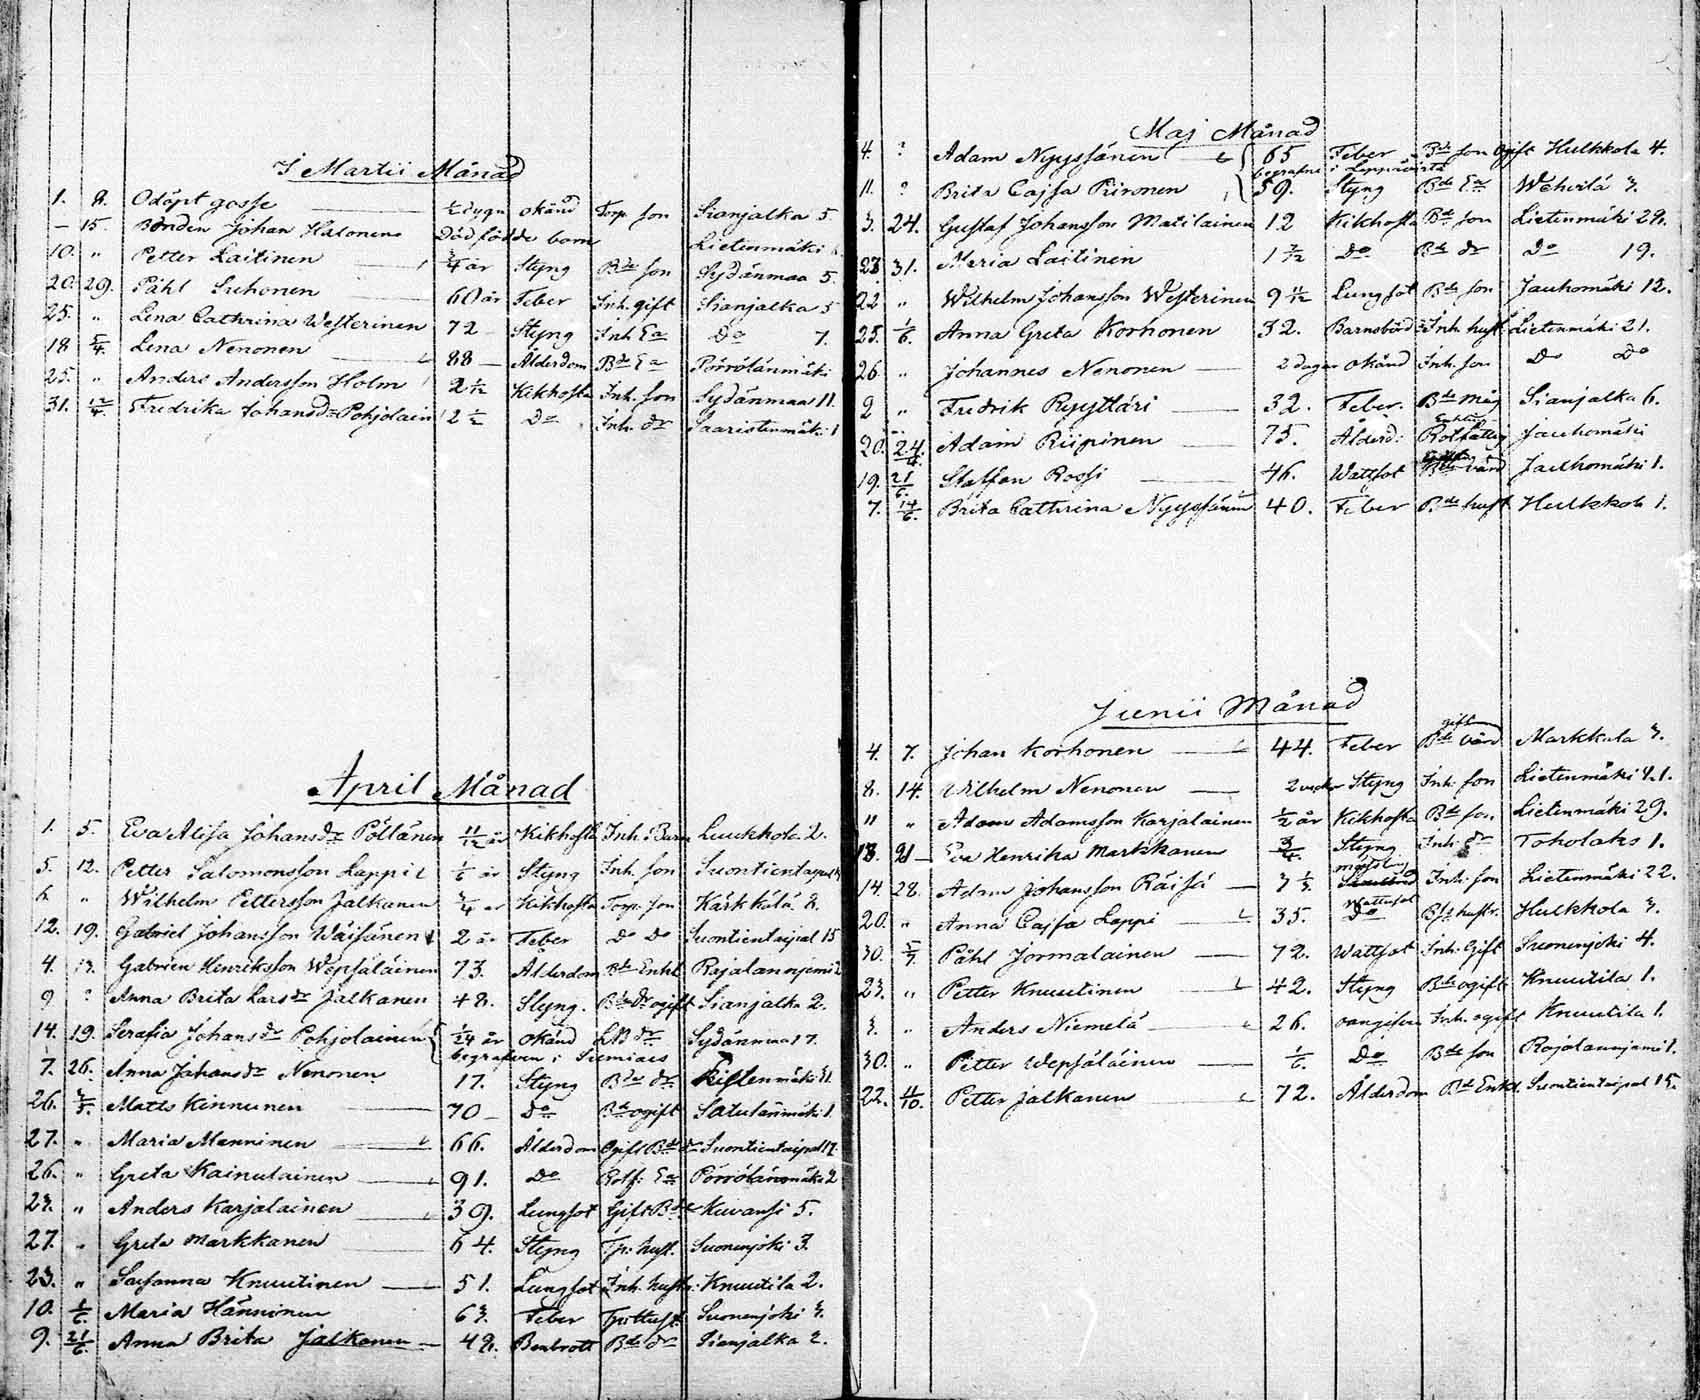 I Martii Månad
1. 8. Odöpt gosse ½ dygn okänd Torp. son Sianjalka 5.
– 15. Bonden Johan Halonens Dödfödde barn Lietenmäki
10. " Petter Laitinen ¾ år Styng Bde son Sydänmaa 5.
20. 29. Påhl Suhonen 60 år Feber Inh. gift Sianjalka 5
25. " Lena Cathrina Westerinen 72 Styng Inh Ea Do 7.
18 5/4. Lena Nenonen 88 – Ålderdom Bde Ea Pörrölänmäki
25. " Anders Andersson Holm 2 Kikhosta Inh. son Sydänmaa 11.
31. 12/4. Fredrika Johansdr Pohjolain 2 ½ Do Inh. dr Saaristenmäki 1
April Månad
1. 5. Eva Alisa Johansdr Pöllänen 11/12 år Kikhosta Inh: Barn Luukkola 2.
5. 12. Petter Salomonsson Lappi 1/6 år Styng Inh. son Suontientaipal
6. " Wilhelm Pettersson Jalkanen ¾ år Kikhosta Torp. son Kärkkälä 8.
12. 19. Gabriel Johansson Wäisänen 2 år Feber Do Do Suontientaipal 15
4. 13. Gabriel Henriksson Wepsäläinen 73. Ålderdom Bde Enkl Rajalanniemi 2
9. ? Anna Brita Larsdr Jalkanen 48. Styng. Bde dr ogift Sianjalka 2.
14. 19. Serafia Johansdr Pohjolainen 1/24 år okänd LB dr Sydänmaa 17.
begrafven i Sumiais
7. 26. Anna Johansdr Nenonen 17. Styng Bde dr Kistenmäki 31.
26. 3/5. Matts Kinnunen 70 – Do Bde ogift Satulanmäki 1.
27. " Maria Manninen 66. Ålderdom Ogift Bde dr Suontientaipal 17.
26. " Greta Kainulainen 91. Do Rotf: Ea Pörrölänmäki 2
23. " Anders Karjalainen 39. Lungsot Gift Bde Kuvansi 5.
27. " Greta Markkanen 64. Styng Tp: hust. Suonenjoki 3.
23. " Susanna Knuutinen 51. Lungsot Inh. hustr: Knuutila 2.
10. 1/6. Maria Hänninen 63. Feber Tp: Hust. Suonenjoki 3.
9. 21/6. Anna Brita Jalkanen 48. Benbrott Bde dr Sianjalka 2.
Maj Månad
4. ? Adam Nyyssönen 65 Feber Bde son Ogift Hulkkola 4.
begrafne i Leppävirta
11. ? Brita Cajsa Piironen 59. Styng Bde Ea Wehvilä 3.
3. 24. Gustaf Johansson Matilainen 12 Kikhosta Bde son Lietenmäki 29.
28 31. Maria Laitinen 1 7/12 Do Bde dr Do 19.
22 " Wilhelm Johansson Westerinen 9 11/12 Lungsot Bde son Jauhomäki 12.
25. 1/6. Anna Greta Korhonen 32. Barnsbörd Inh hust Lietenmäki 21.
26. " Johannes Nenonen 2 dagar okänd Inh. son Do Do
2 " Fredrik Ryyttäri 32. Feber. Bde måg Sianjalka 6.
20. 24/6. Adam Piipinen 75. Ålderd: Enkling Rotfattig Jauhomäki
19. 21/6. Staffan Rossi 46. Wattsot värd Jauhomäki 1.
7. 14/6. Brita Cathrina Nyyssönen 40. Feber Bde hust Hulkkola 1.
Junii Månad
4. 7. Johan Korhonen 44. Feber gift Bde värd Markkala 3.
8. 14. Wilhelm Nenonen 2 veckor Styng Inh son Lietenmäki 41.
" " Adam Adamsson Karjalainen ½ år Kikhosta Bde son. Lietenmäki 29.
13. 21 – Eva Henrika Markkanen ¾. Styng Inh. dr Toholaks 1.
14. 28. Adam Johansson Räisä 3 ½ Inh. son Lietenmäki 22.
20. " Anna Cajsa Lappi 35. Wattusot Do Bde hustr. Hulkkola 3.
30. 5/7. Påhl Jormalainen 72. Wattsot Inh. Gift Suonenjoki 4.
23. " Petter Knuutinen 42. Styng Bde ogift Knuutila 1.
3. " Anders Niemelä 26. Inh. ogift Knuutila 1.
30. " Petter Wepsäläinen 1/6. Do Bde son Rajalanniemi 1.
22. 11/10. Petter Jalkanen 72. Ålderdom Bde Enkl. Suontientaipal 15.